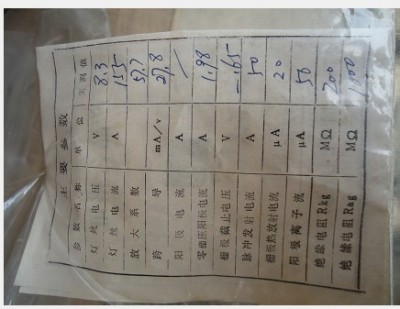 主要参数
参数名称 单位 实测值
灯丝电压 V 8.3
灯丝电流 A 155
放大系数 57.7
跨导 mA/v 27.8
阳极电流 A /
零栅压阳极电流 A 1.98
栅极截止电压 V -.65
脉冲发射电流 A 50
栅极热放射电流 μA 20
阳极离子流 μA 50
绝缘电阻Rkg MΩ 200
绝缘电阻Rag MΩ